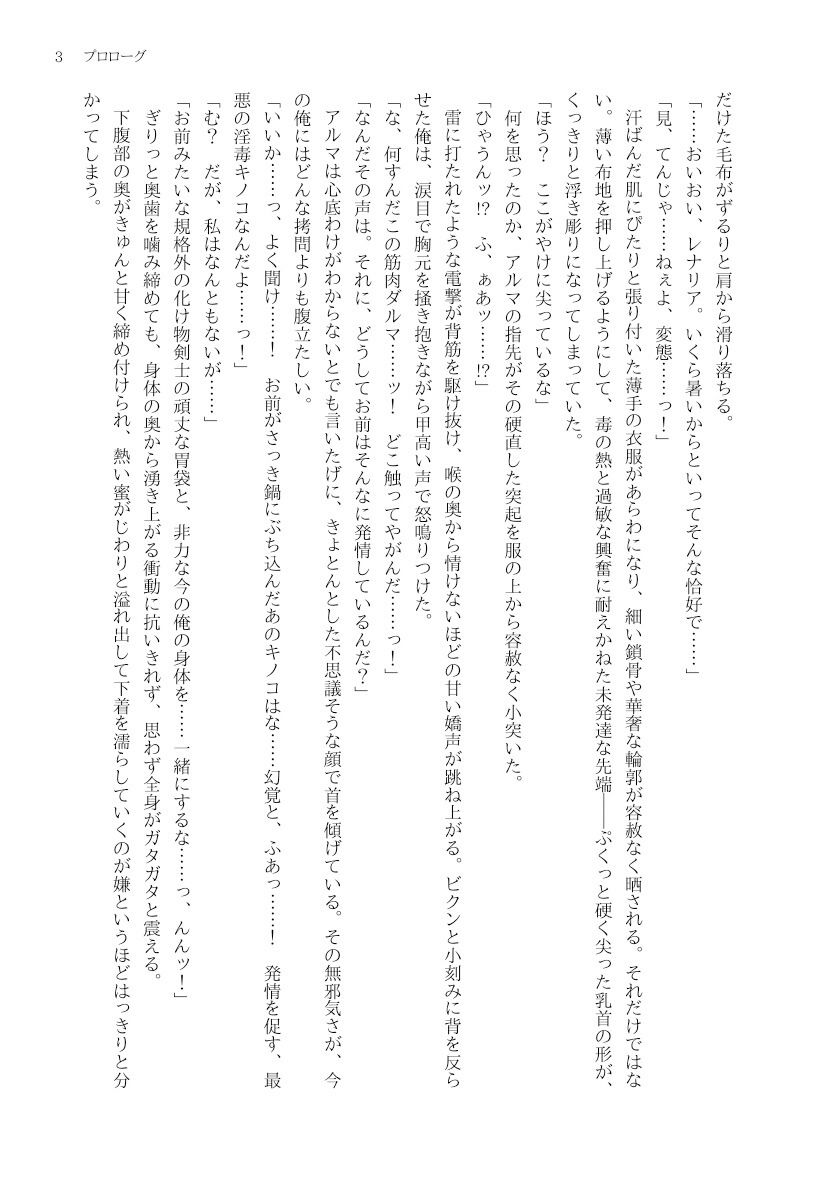 3 プロローグ
だけた毛布がずるりと肩から滑り落ちる。
「……おいおい、レナリア。いくら暑いからといってそんな恰好で……」
「見、てんじゃ……ねぇよ、変態……っ！」
汗ばんだ肌にぴたりと張り付いた薄手の衣服があらわになり、細い鎖骨や華奢な輪郭が容赦なく晒される。それだけではな
い。薄い布地を押し上げるようにして、毒の熱と過敏な興奮に耐えかねた未発達な先端――ぷくっと硬く尖った乳首の形が、
くっきりと浮き彫りになってしまっていた。
「ほう？　ここがやけに尖っているな」
何を思ったのか、アルマの指先がその硬直した突起を服の上から容赦なく小突いた。
「ひゃうんッ!?　ふ、ぁあッ……!?」
雷に打たれたような電撃が背筋を駆け抜け、喉の奥から情けないほどの甘い嬌声が跳ね上がる。ビクンと小刻みに背を反ら
せた俺は、涙目で胸元を掻き抱きながら甲高い声で怒鳴りつけた。
「な、何すんだこの筋肉ダルマ……ッ！　どこ触ってやがんだ……っ！」
「なんだその声は。それに、どうしてお前はそんなに発情しているんだ？」
アルマは心底わけがわからないとでも言いたげに、きょとんとした不思議そうな顔で首を傾げている。その無邪気さが、今
の俺にはどんな拷問よりも腹立たしい。
「いいか……っ、よく聞け……！　お前がさっき鍋にぶち込んだあのキノコはな……幻覚と、ふあっ……！　発情を促す、最
悪の淫毒キノコなんだよ……っ！」
「む？　だが、私はなんともないが……」
「お前みたいな規格外の化け物剣士の頑丈な胃袋と、非力な今の俺の身体を……一緒にするな……っ、んんッ！」
ぎりっと奥歯を噛み締めても、身体の奥から湧き上がる衝動に抗いきれず、思わず全身がガタガタと震える。
下腹部の奥がきゅんと甘く締め付けられ、熱い蜜がじわりと溢れ出して下着を濡らしていくのが嫌というほどはっきりと分
かってしまう。